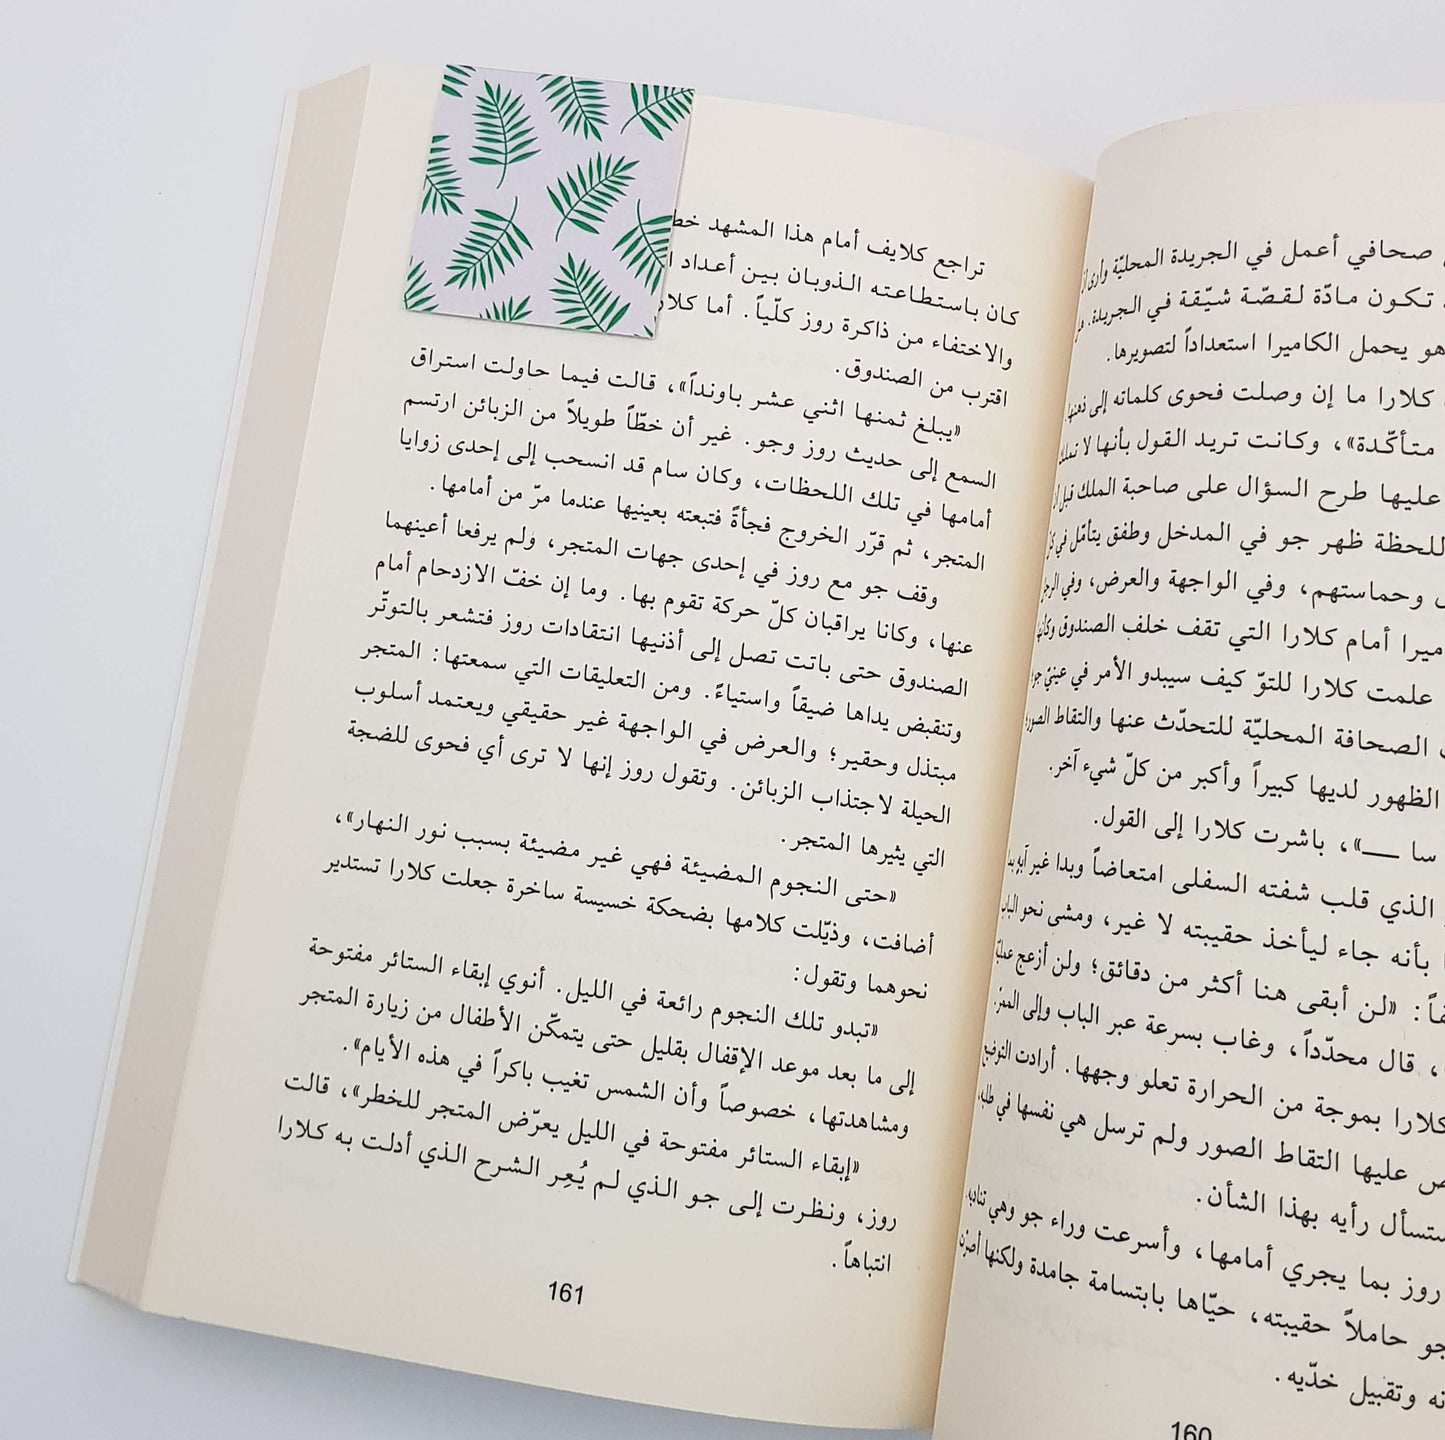 صحافي أعمل في الجريدة المحليّة وأرى أن
تكون مادّة لقصّة شيّقة في الجريدة. هل
هو يحمل الكاميرا استعداداً لتصويرها.
كلارا ما إن وصلت فحوى كلماته إلى ذهنها.
متأكّدة»، وكانت تريد القول بأنها لا تملك
عليها طرح السؤال على صاحبة الملك قبل
للحظة ظهر جو في المدخل وطفق يتأمّل في كل
وحماستهم، وفي الواجهة والعرض، وفي الرجل
أمام كلارا التي تقف خلف الصندوق وكأنها
علمت كلارا للتوّ كيف سيبدو الأمر في عينيّ جو:
الصحافة المحليّة للتحدّث عنها والتقاط الصور،
الظهور لديها كبيراً وأكبر من كلّ شيء آخر.
سا ــــ»، باشرت كلارا إلى القول.
الذي قلب شفته السفلى امتعاضاً وبدا غير آبه
بأنه جاء ليأخذ حقيبته لا غير، ومشى نحو الباب
«لن أبقى هنا أكثر من دقائق؛ ولن أزعج
، قال محدّداً، وغاب بسرعة عبر الباب وإلى الممرّ.
كلارا بموجة من الحرارة تعلو وجهها. أرادت التوضيح
عليها التقاط الصور ولم ترسل هي نفسها في طلبه،
ستسأل رأيه بهذا الشأن.
روز بما يجري أمامها، وأسرعت وراء جو وهي تناديه.
جو حاملاً حقيبته، حيّاها بابتسامة جامدة ولكنها
وتقبيل خدّيه.
160
تراجع كلايف أمام هذا المشهد
كان باستطاعته الذوبان بين أعداد
والاختفاء من ذاكرة روز كلّياً. أما
اقترب من الصندوق.
«يبلغ ثمنها اثني عشر باونداً»، قالت فيما حاولت استراق
السمع إلى حديث روز وجو. غير أن خطّاً طويلاً من الزبائن ارتسم
أمامها في تلك اللحظات، وكان سام قد انسحب إلى إحدى زوايا
المتجر، ثم قرّر الخروج فجأةً فتبعته بعينيها عندما مرّ من أمامها.
وقف جو مع روز في إحدى جهات المتجر، ولم يرفعا أعينهما
عنها، وكانا يراقبان كلّ حركة تقوم بها. وما إن خفّ الازدحام أمام
الصندوق حتى باتت تصل إلى أذنيها انتقادات روز فتشعر بالتوتّر
وتنقبض يداها ضيقاً واستياءً. ومن التعليقات التي سمعتها: المتجر
مبتذل وحقير؛ والعرض في الواجهة غير حقيقي ويعتمد أسلوب
الحيلة لاجتذاب الزبائن. وتقول روز إنها لا ترى أي فحوى للضجة
التي يثيرها المتجر.
«حتى النجوم المضيئة فهي غير مضيئة بسبب نور النهار»،
أضافت، وذيّلت كلامها بضحكة خسيسة ساخرة جعلت كلارا تستدير
نحوهما وتقول:
«تبدو تلك النجوم رائعة في الليل. أنوي إبقاء الستائر مفتوحة
إلى ما بعد موعد الإقفال بقليل حتى يتمكّن الأطفال من زيارة المتجر
ومشاهدتها، خصوصاً وأن الشمس تغيب باكراً في هذه الأيام».
«إبقاء الستائر مفتوحة في الليل يعرّض المتجر للخطر»، قالت
روز، ونظرت إلى جو الذي لم يُعِر الشرح الذي أدلت به كلارا
انتباهاً.
161